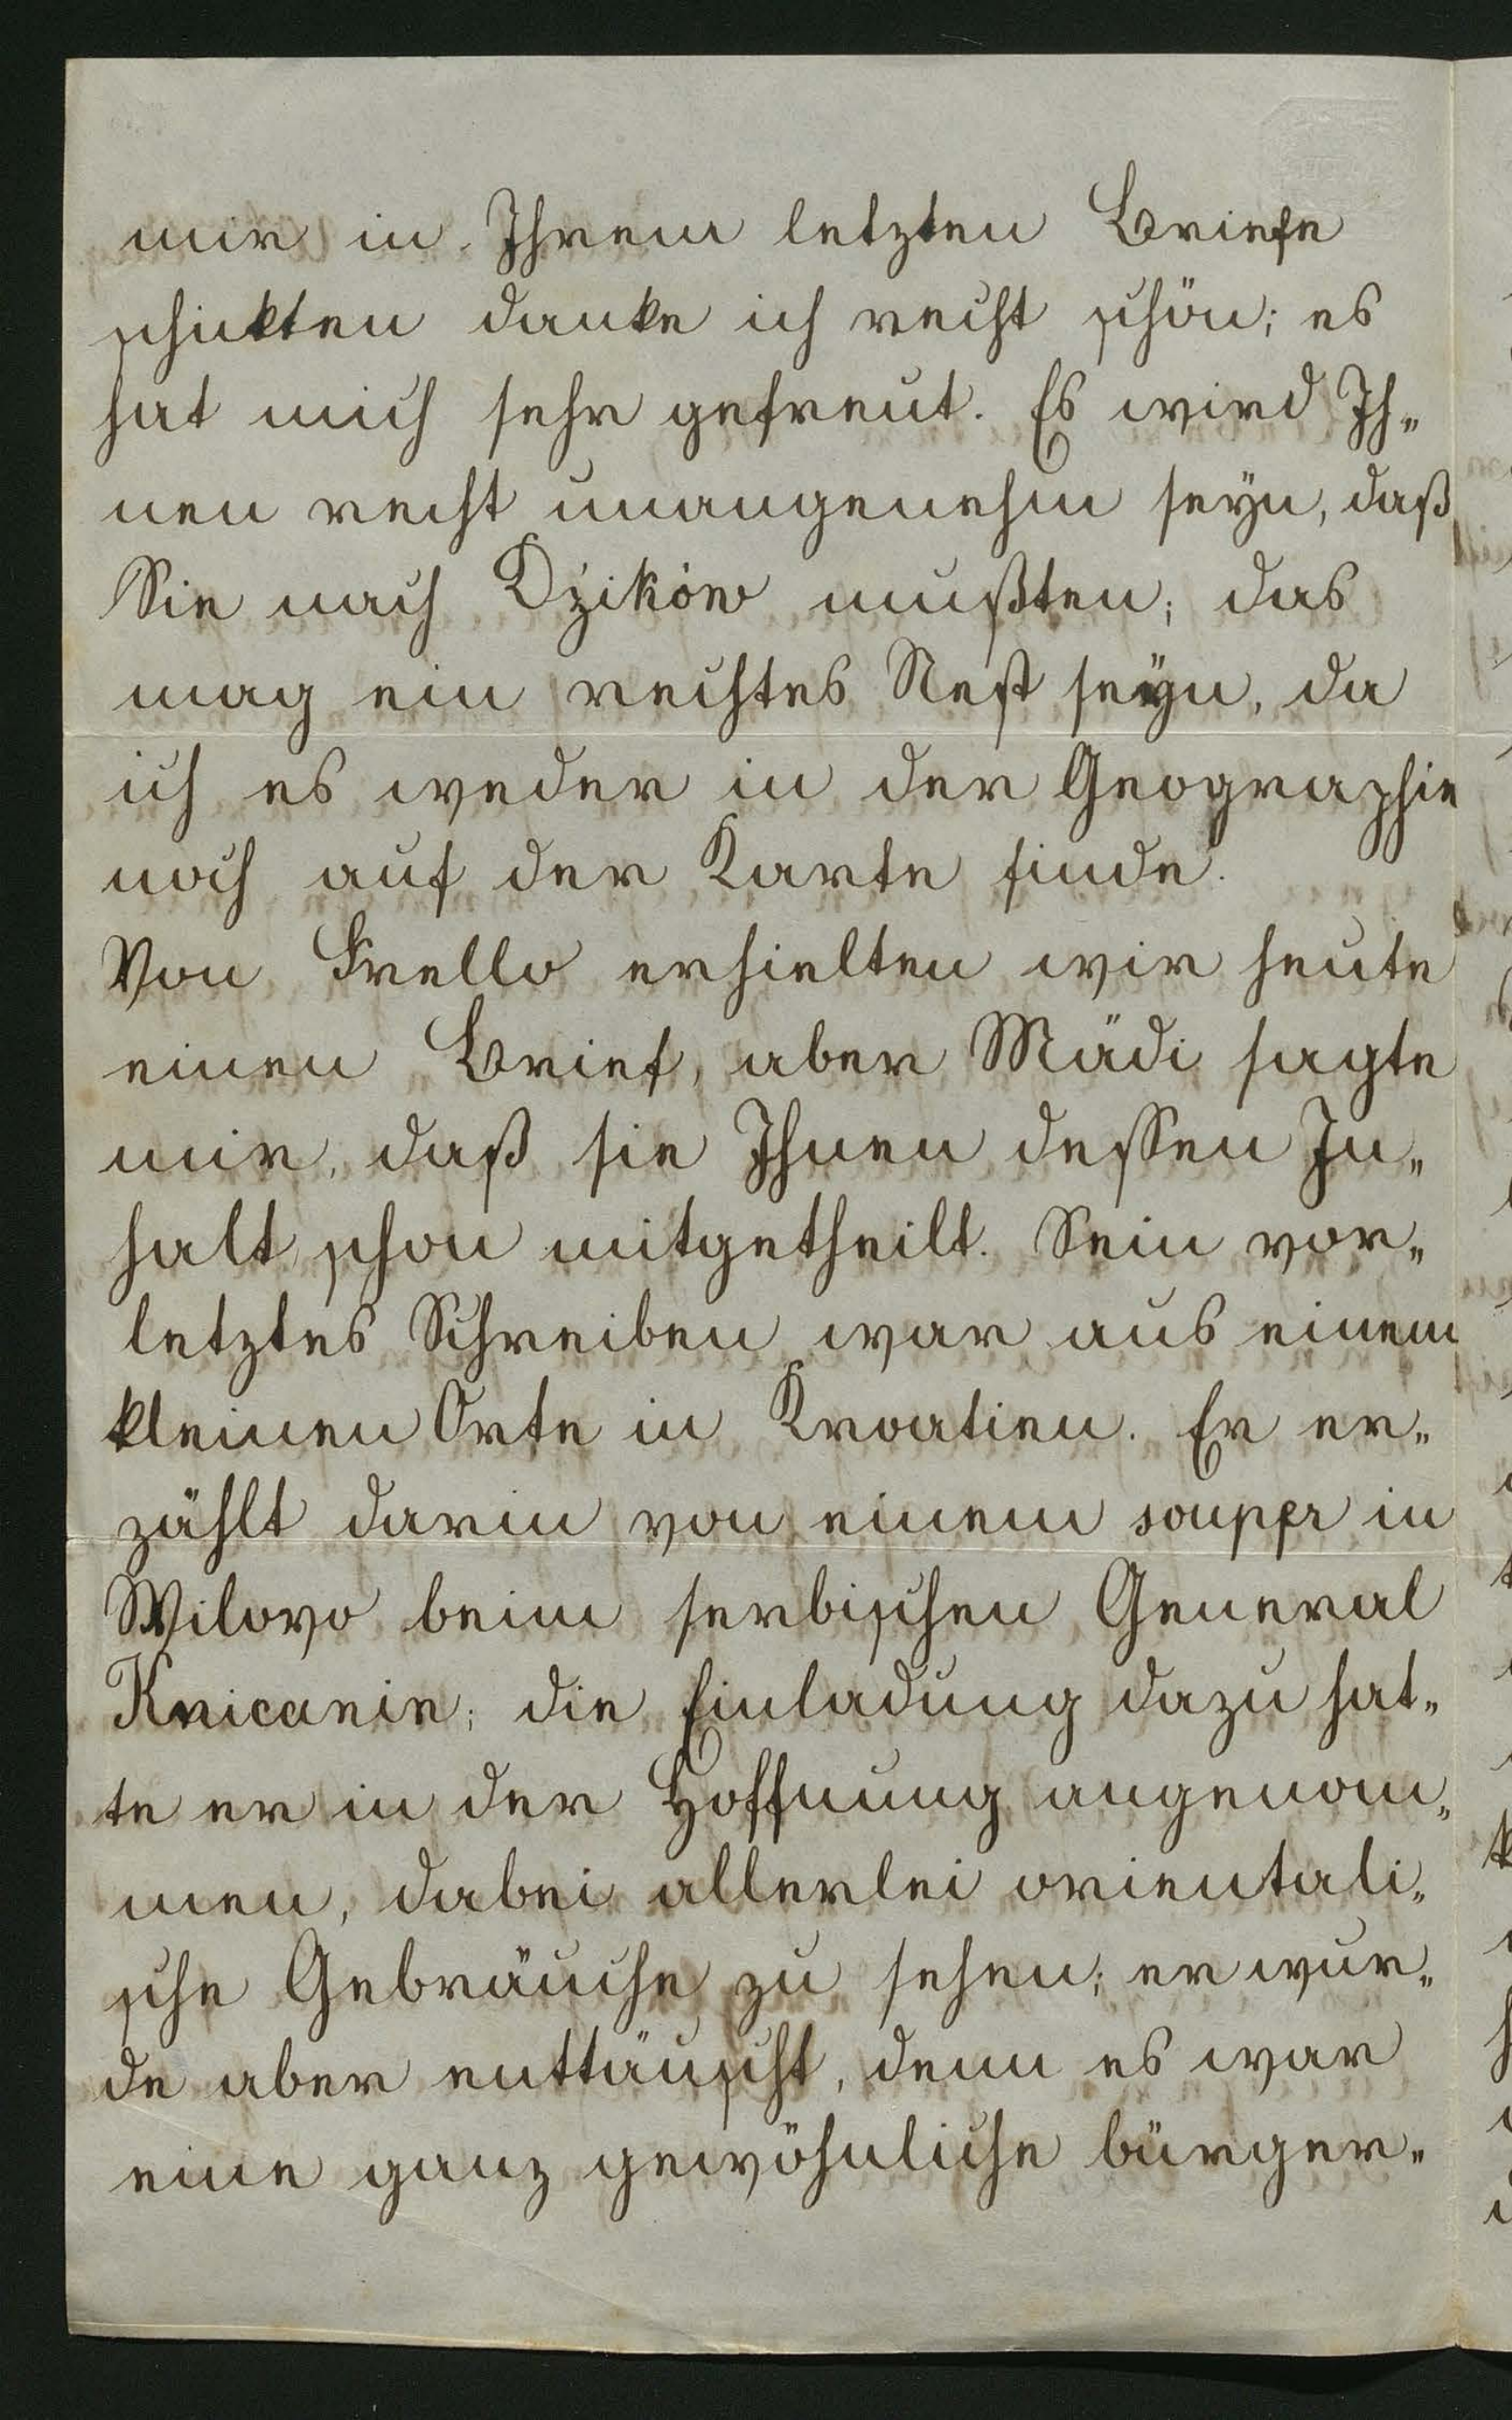 mir in Ihrem letzten Briefe
schickten danke ich recht schön; es
hat mich sehr gefreut. Es wird Ih„
nen recht unangenehm seyn, daß
Sie nach Dźików mußten; das
mag ein rechtes Nest seyn, da
ich es weder in der Geographie
noch auf der Karte finde.
Von Frello erhielten wir heute
einen Brief, aber Mädi sagte
mir, daß sie Ihnen dessen In„
halt schon mitgetheilt. Sein vor„
letztes Schreiben war aus einem
kleinen Orte in Kroatien. Er er„
zählt darin von einem souper in
Wilovo beim serbischen General
Knicanin; die Einladung dazu hat„
te er in der Hoffnung angenom„
men, dabei allerlei orientali„
sche Gebräuche zu sehen; er wur„
de aber enttäuscht, denn es war
eine ganz gewöhnliche bürger„